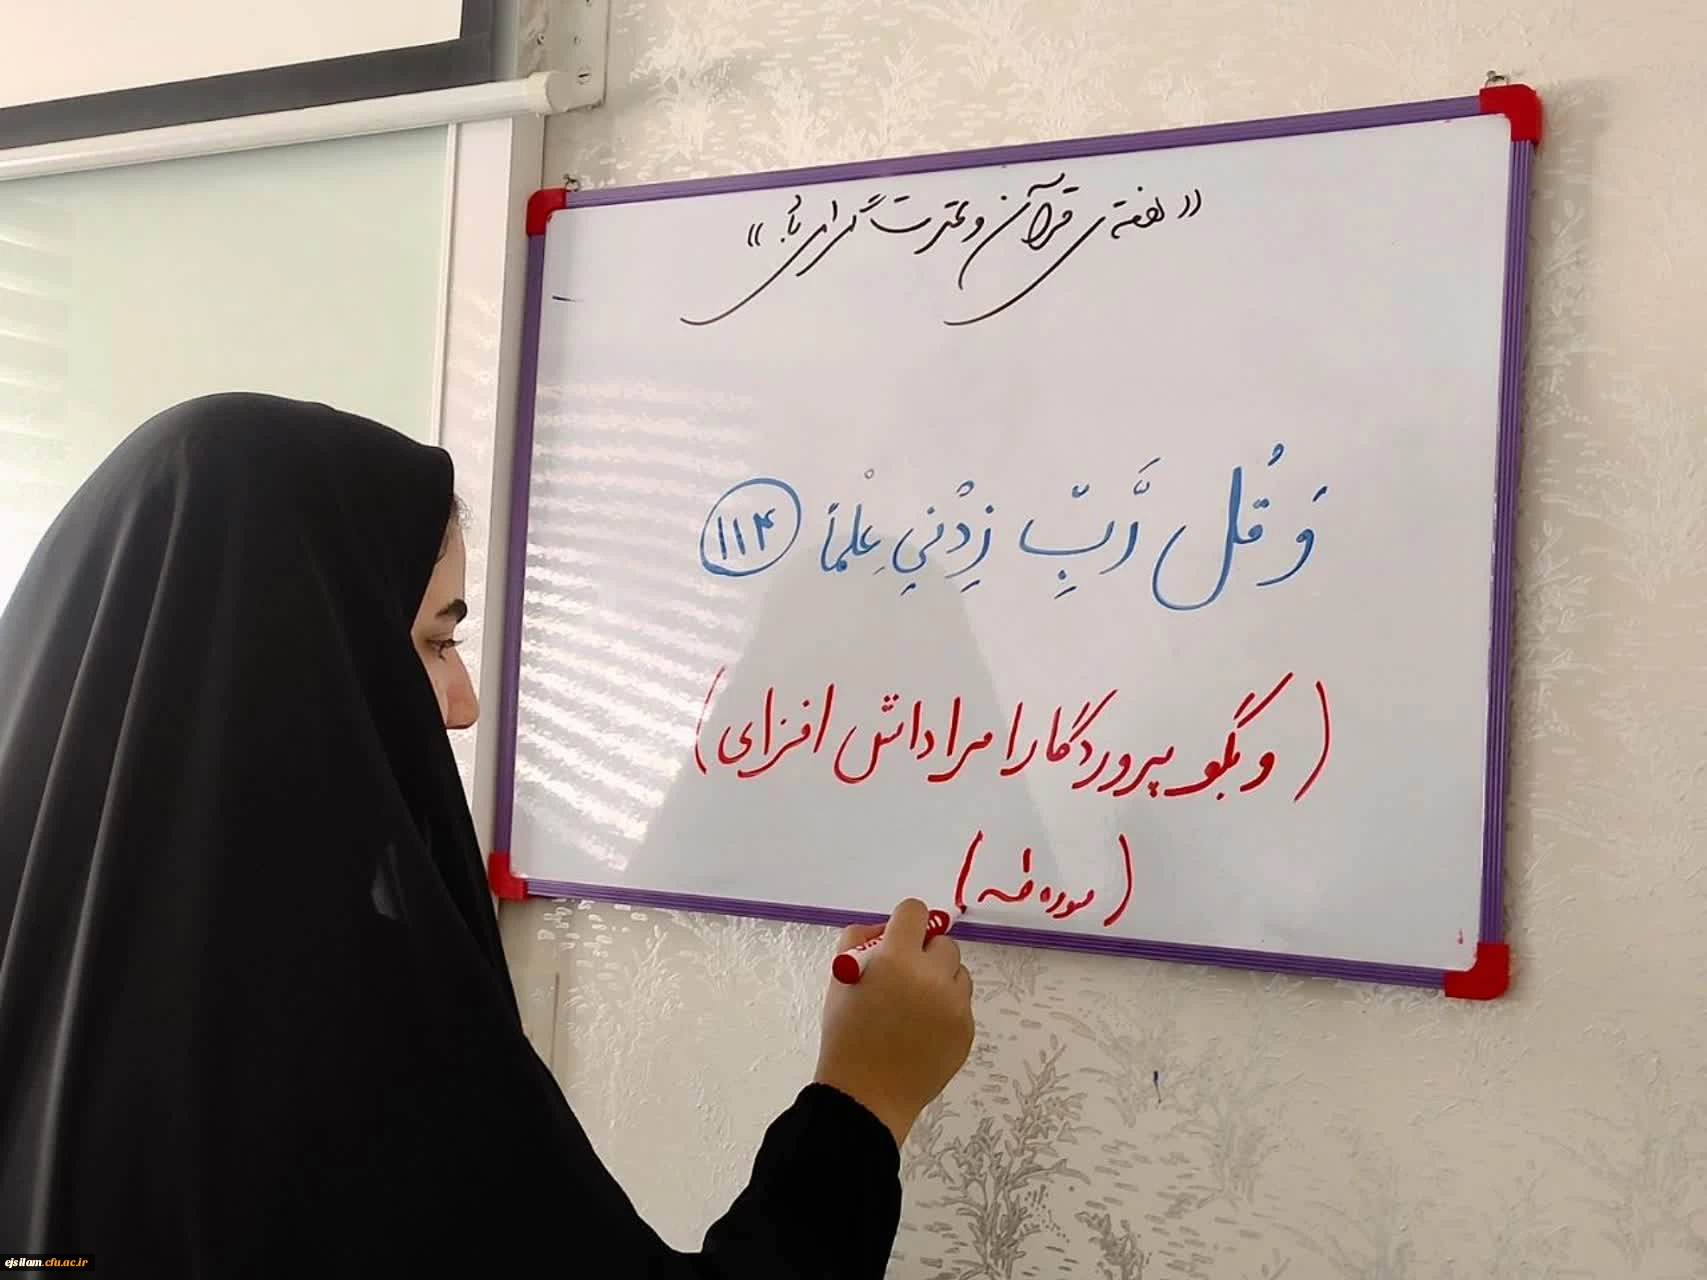 «هفته‌ی قرآن و عترت گرامی باد»
وَ قُل رَّبِّ زِدْنِي عِلْماً ۱۱۴
(و بگو پروردگارا مرا دانش افزای)
(سوره طه)
ejsilam.cfu.ac.ir